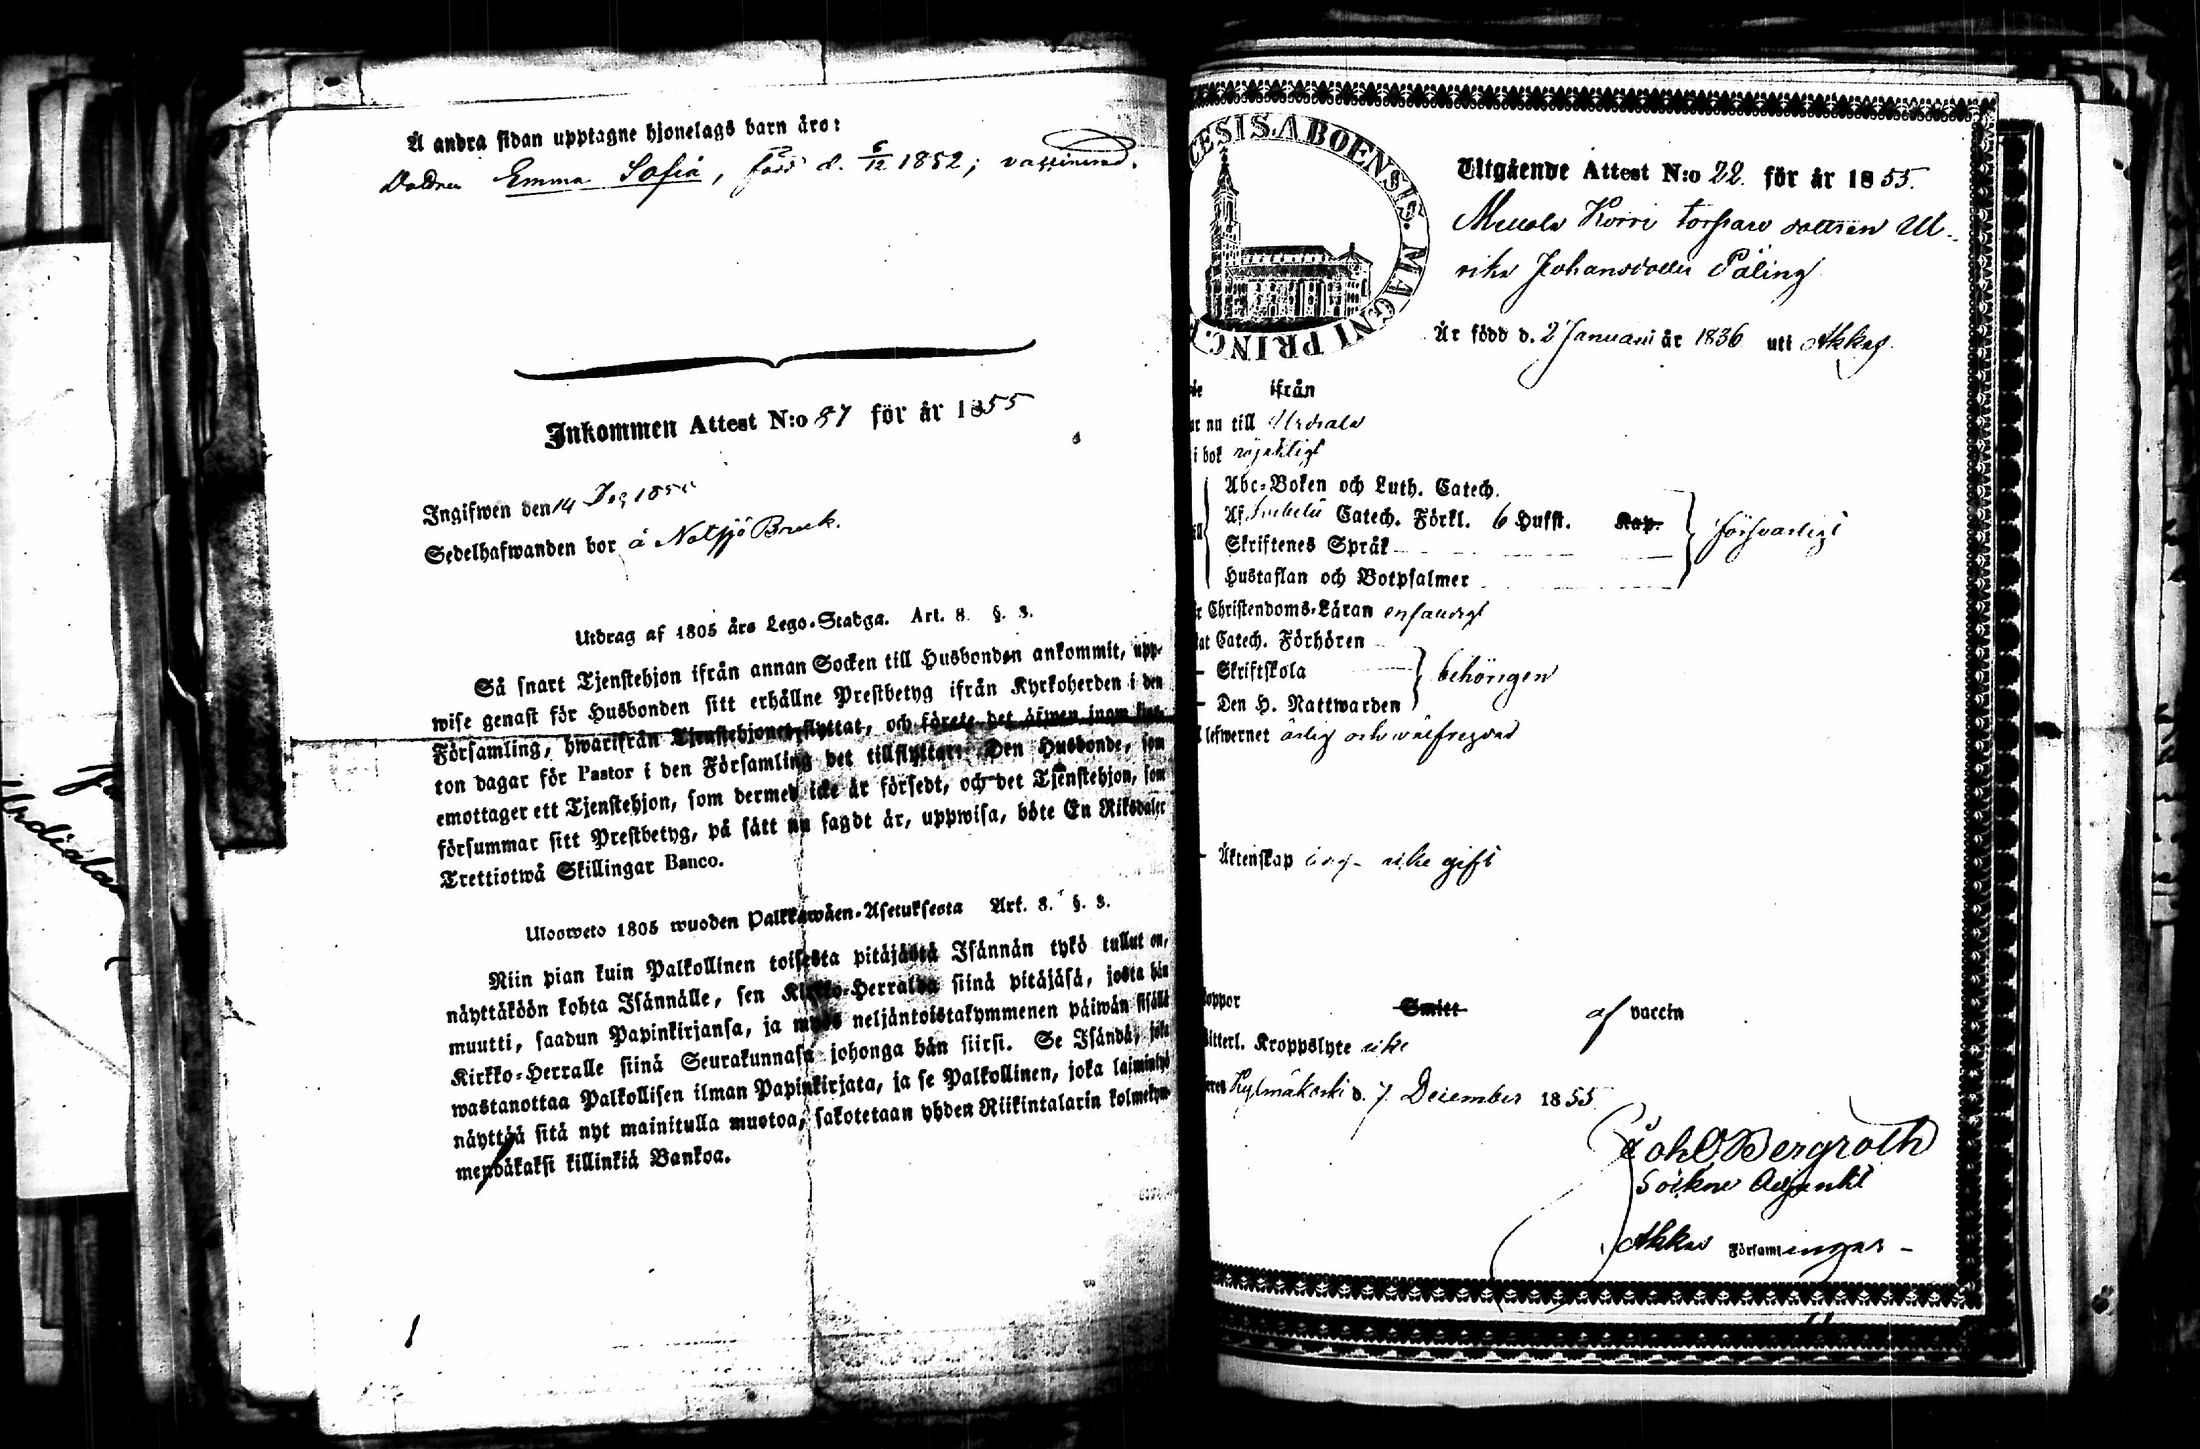 Å andra sidan upptagne hjonelags barn äro:
Dottren Emma Sofia, född d. 6/12 1852; vaccinerad.
Inkommen Attest N:o 87 för år 1855
Ingifwen den 14 Dec 1855
Sedelhafwanden bor å Notsjö Bruk.
Utdrag af 1805 års Lego-Stadga. Art. 8. §. 3.
Så snart Tjenstehjon ifrån annan Socken till Husbonden ankommit, upp-
wise genast för Husbonden sitt erhållne Prestbetyg ifrån Kyrkoherden i den
Församling, hwarifrån Tjenstehjonet flyttat, och förete det äfwen inom fjor-
ton dagar för Pastor i den Församling det tillflyttar. Den Husbonde, som
emottager ett Tjenstehjon, som dermed icke är försedt, och det Tjenstehjon, som
försummar sitt Prestbetyg, på sätt nu sagdt är, uppwisa, böte En Riksdaler
Trettiotwå Skillingar Banco.
Ulosweto 1805 wuoden Palkkawäen-Asetuksesta Art. 8. §. 3.
Niin pian kuin Palkollinen toisesta pitäjästä Isännän tykö tullut on,
näyttäköön kohta Isännälle, sen Kirkko-Herralda siinä pitäjäsä, josta hän
muutti, saadun Papinkirjansa, ja myös neljäntoistakymmenen päiwän sisällä
Kirkko-Herralle siinä Seurakunnasa johonga hän siirsi. Se Isändä, joka
wastanottaa Palkollisen ilman Papinkirjata, ja se Palkollinen, joka laiminlyö
näyttää sitä nyt mainitulla muotoa, sakotetaan yhden Riikintalarin kolmekym-
mendäkaksi killinkiä Bankoa.
CESIS. ABOENSIS. MAGNI PRINC.
Utgående Attest N:o 22. för år 1855.
Korri torpare dottren Ul-
rika Johansdotter Påling
Är född d. 2 Januari år 1836 uti Akkas.
ifrån
nu till Urdiala
i bok
Abc-Boken och Luth. Catech.
Af Svebelii Catech. Förkl. 6 Hufst. Kap.
Skriftenes Språk
Hustaflan och Botpsalmer
försvarligt
Christendoms-Läran enfaldigt
Catech. Förhören
Skriftskola
Den H. Nattwarden
behörigen
lefwernet ärlig och välfrejdad
Äktenskap icke gift
koppor Smitt af vaccin
Kroppslyte icke
Kylmäkoski d. 7 December 1855.
Joh O Bergroth
Sockne Adjunkt
Akkas Församlingar
Urdiala